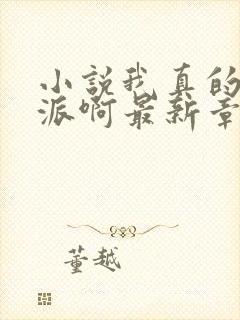 小説我真的
派啊最新章
董越